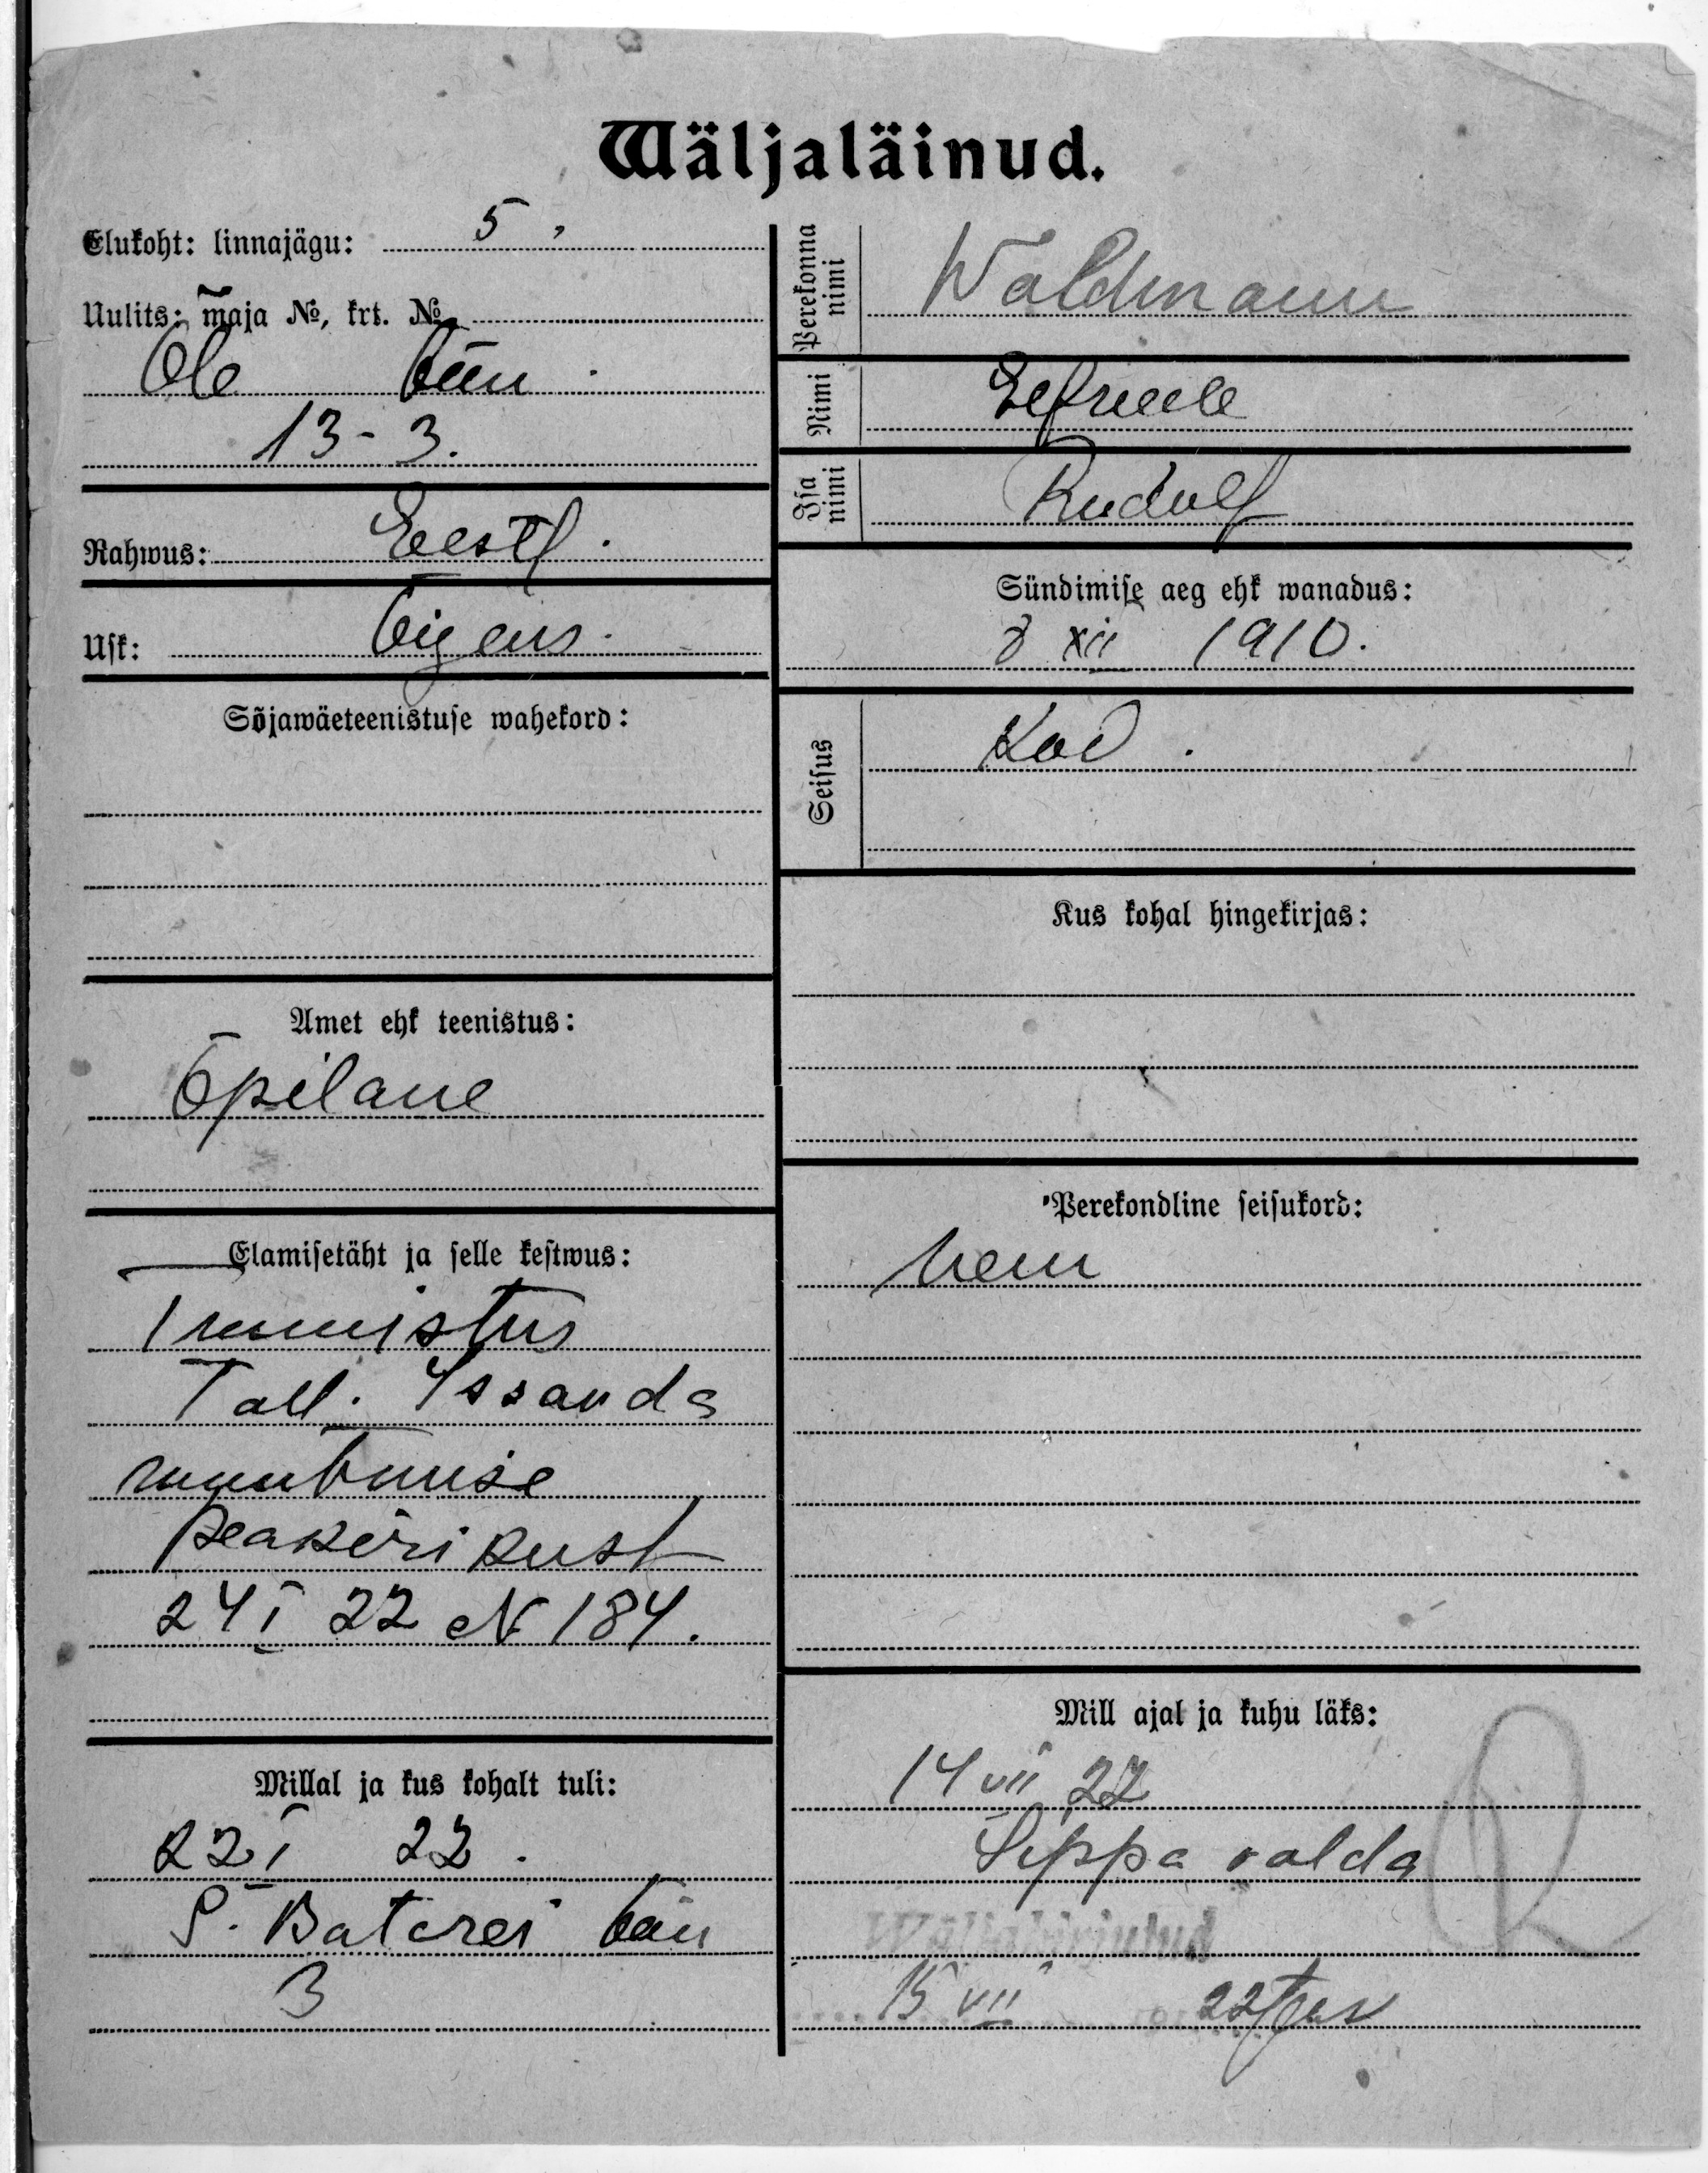 Wäljaläinud.
Elukoht: linnajägu: 5,
Uulits: maja №, krt. №
Ole tän.
13-3.
Rahwus: Eestl.
Usk: õigeus.
Sõjawäeteenistuse wahekord:
Amet ehk teenistus:
Õpilane
Elamisetäht ja selle kestwus:
Tunnistus
Tall. Issanda
muutmise
peakirikust
24 I 22 N 184.
Millal ja kus kohalt tuli:
22 I 22.
S. Baterei tän
3
Perekonna nimi Waldmann
Nimi
Isa nimi Rudolf
Sündimise aeg ehk wanadus:
8 XII 1910.
Seisus Kod.
Kus kohal hingekirjas:
Perekondline seisukord:
Mill ajal ja kuhu läks:
14 VII 22
Sippa valda
Wäljakirjutud
15 VII 22